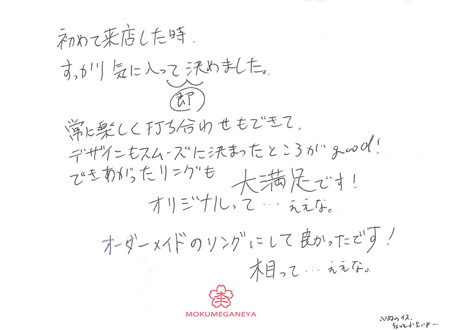 初めて来店した時
すっかり気に入って決めました。
即
常に楽しく打ち合わせもできて、
デザインもスムーズに決まったところがgood!
できあがったリングも
大満足です！
オリジナルって…ええな。
オーダーメイドのリングにして良かったです！
相って…ええな。
MOKUMEGANEYA